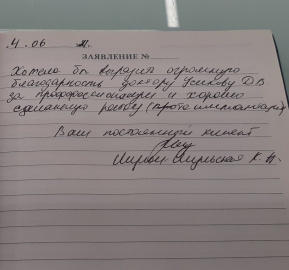 4.06
ЗАЯВЛЕНИЕ №
Хотела бы выразить огромную
благодарность доктору Усикову ДВ
за профессионализм и хорошо
сделанную работу (протез имплантация)
Ваш постоянный клиент